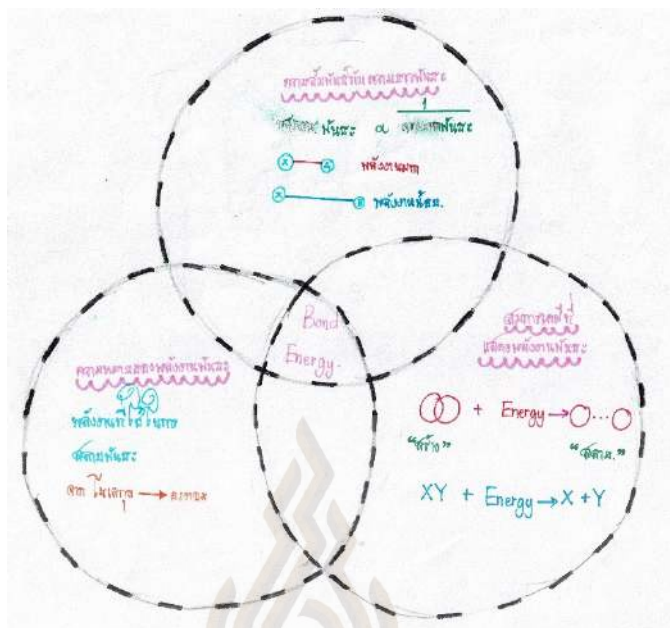 ความสัมพันธ์กับความยาวพันธะ
พลังงานพันธะ ∝ 1/ความยาวพันธะ
X A พลังงานมาก
X B พลังงานน้อย.
Bond
Energy.
ความหมายของพลังงานพันธะ
พลังงานที่ใช้ในการ
สลายพันธะ
จาก โมเลกุล → อะตอม
สมการเคมีที่
แสดงพลังงานพันธะ
+ Energy →
"สร้าง" "สลาย."
XY + Energy → X + Y